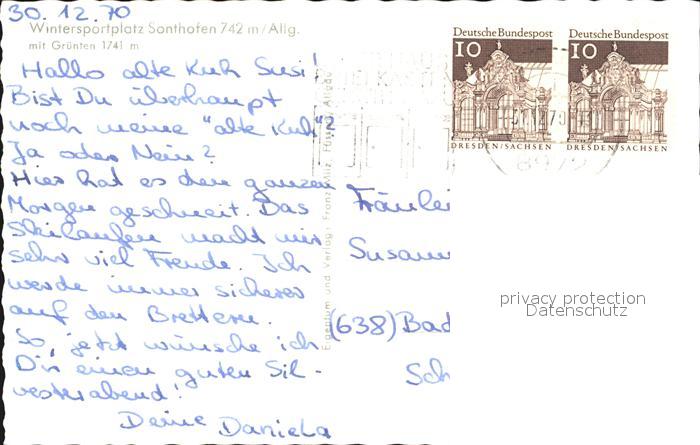 30.12.70
Wintersportplatz Sonthofen 742 m / Allg.
mit Grünten 1741 m
Hallo alte Kuh Susi!
Bist Du überhaupt
noch meine "alte Kuh"?
Ja oder Nein?
Hier hat es den ganzen
Morgen geschneit. Das
Skilaufen macht mir
sehr viel Freude. Ich
werde immer sicherer
auf den Brettern.
So, jetzt wünsche ich
Dir einen guten Sil-
vesterabend!
Deine Daniela
Eigentum und Verlag: Franz Milz, Füssen/Allgäu
Deutsche Bundespost
10
DRESDEN/SACHSEN
Deutsche Bundespost
10
DRESDEN/SACHSEN
Fräulei
Susann
(638) Bad
Sch
privacy protection
Datenschutz